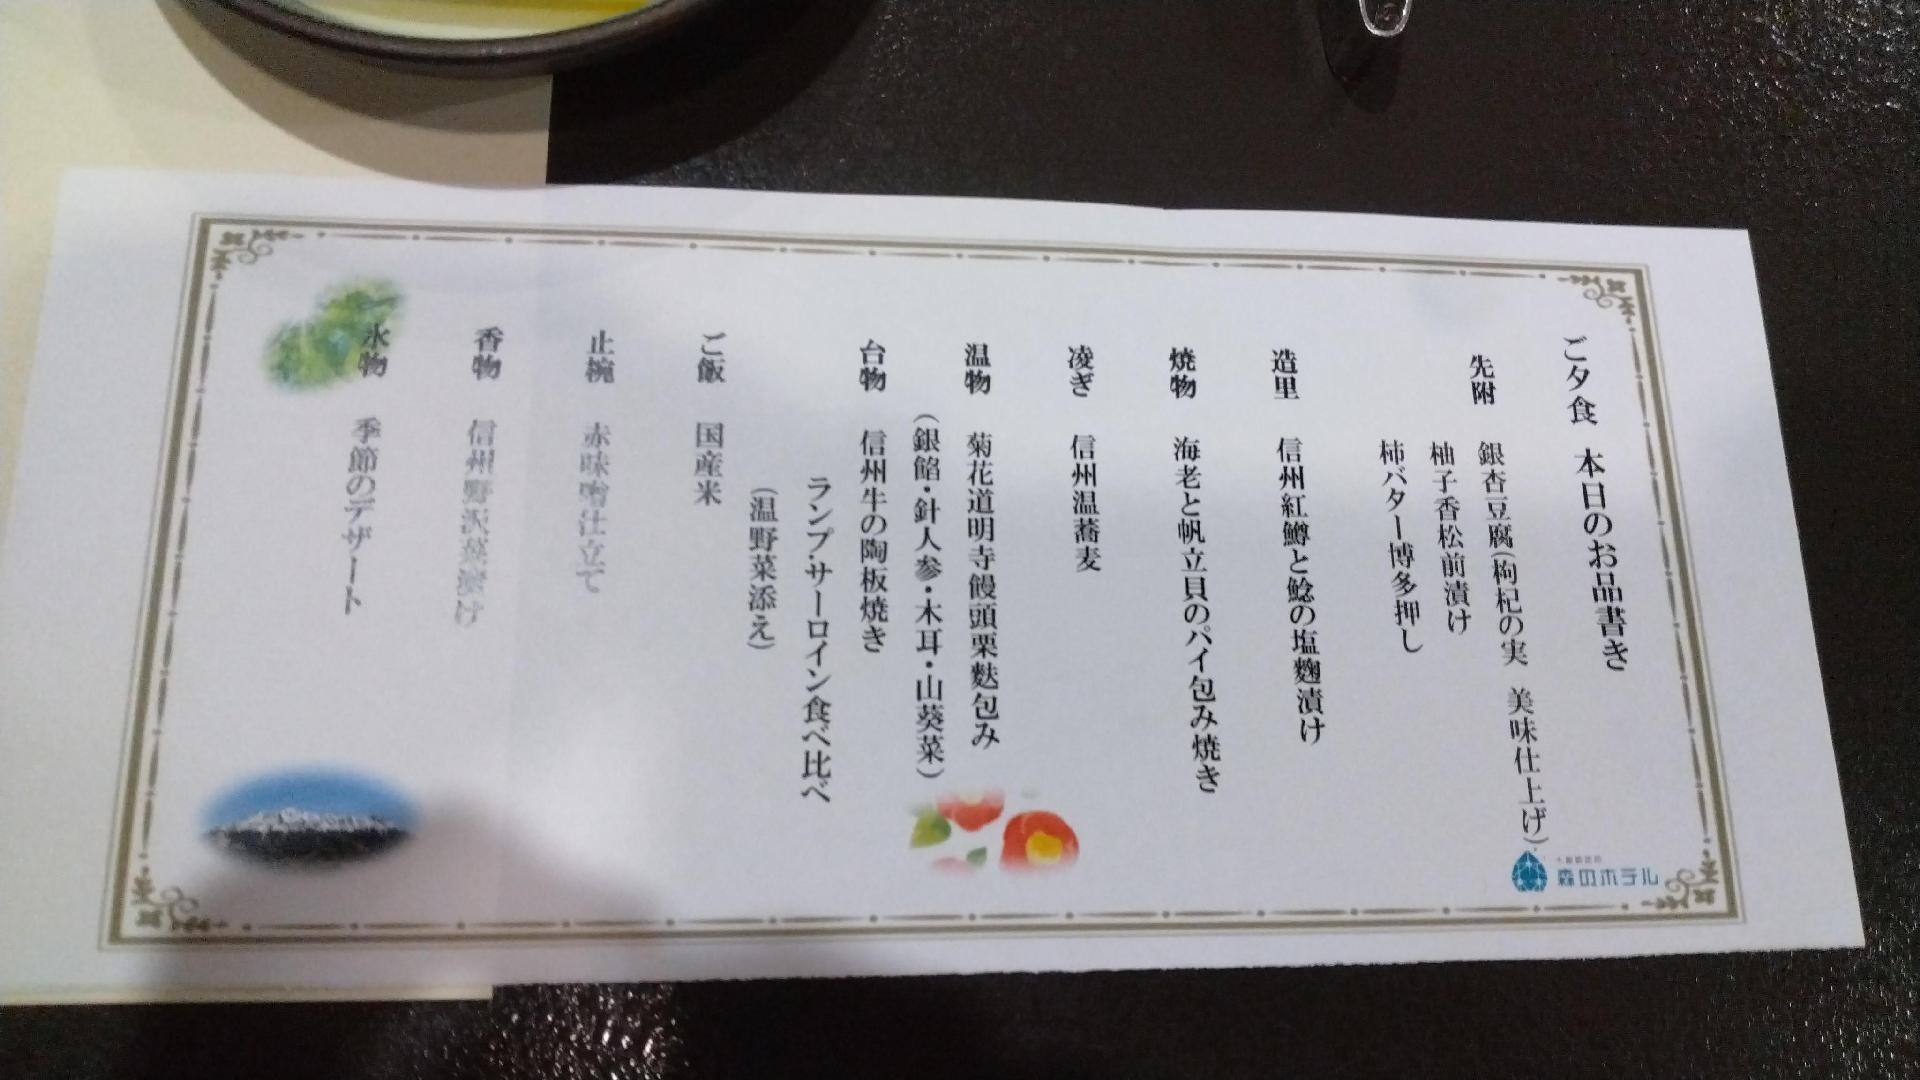 ご夕食 本日のお品書き
先附 銀杏豆腐(枸杞の実 美味仕上げ)
柚子香松前漬け
柿バター博多押し
造里 信州紅鱒と鯰の塩麴漬け
焼物 海老と帆立貝のパイ包み焼き
凌ぎ 信州温蕎麦
温物 菊花道明寺饅頭栗麩包み
(銀餡・針人参・木耳・山葵菜)
台物 信州牛の陶板焼き
ランプ・サーロイン食べ比べ
(温野菜添え)
ご飯 国産米
止椀 赤味噌仕立て
香物 信州野沢菜漬け
水物 季節のデザート
森のホテル